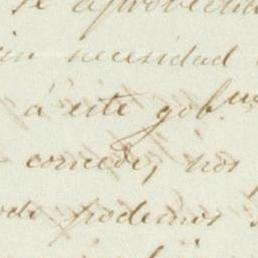 se aprovecha
sin necesidad
á este gob.no
concede, nos
podemos